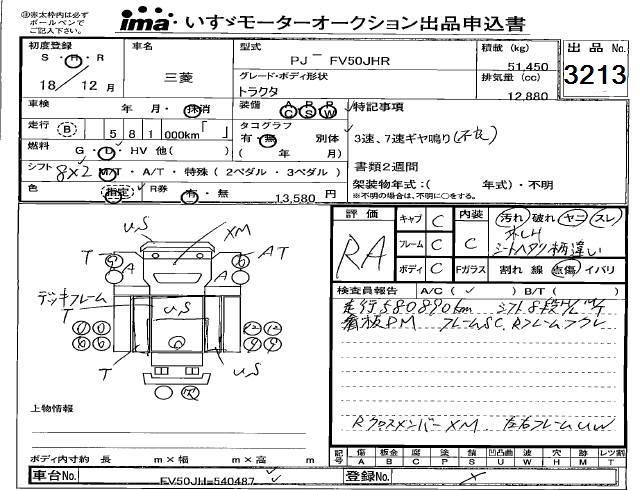 ㊟※太枠内は必ず ボールペンで ご記入下さい。
ima いすゞモーターオークション出品申込書
初度登録 S・H・R 18 / 12 月
車名 三菱
型式 PJ－FV50JHR
積載 (kg) 51,450
出品No. 3213
グレード・ボディ形状 トラクタ
排気量 (cc) 12,880
車検 年 月・抹消
装備 AC PS RW
特記事項
走行 B 581 000km「 」
タコグラフ 有・無 ( 年 月)
3速、7速ギヤ鳴り(不良)
燃料 G・D・HV 他( )
書類2週間
シフト 8×2 M/T・A/T・特殊 ( 2ペダル・3ペダル )
架装物年式:( 年式)・不明
※不明の場合は、不明に○をする。
色 指定 R券 有・無 13,580 円
評価 RA
キャブ C 内装 C 汚れ 破れ ヤニ スレ
フレーム C
シートヘタリ柄違い
ボディ C Fガラス 割れ 線 点傷 イバリ
検査員報告 A/C ( ✓ ) B/T ( )
走行580890km
看板PM フレームSC
RクロスメンバーXM 左右フレームUW
U.S
XM
T
AT
A
A
デッキフレーム
T
U.S
T
U.S
上物情報
ボディ内寸約 長 m×幅 m×高 m
記号 傷 A 板金 B 腐 C 塗 P 錆 S 凹凸曲 U 波 W 穴 H 欠 M レツ割 T
車台No. FV50JH=540487
登録No.